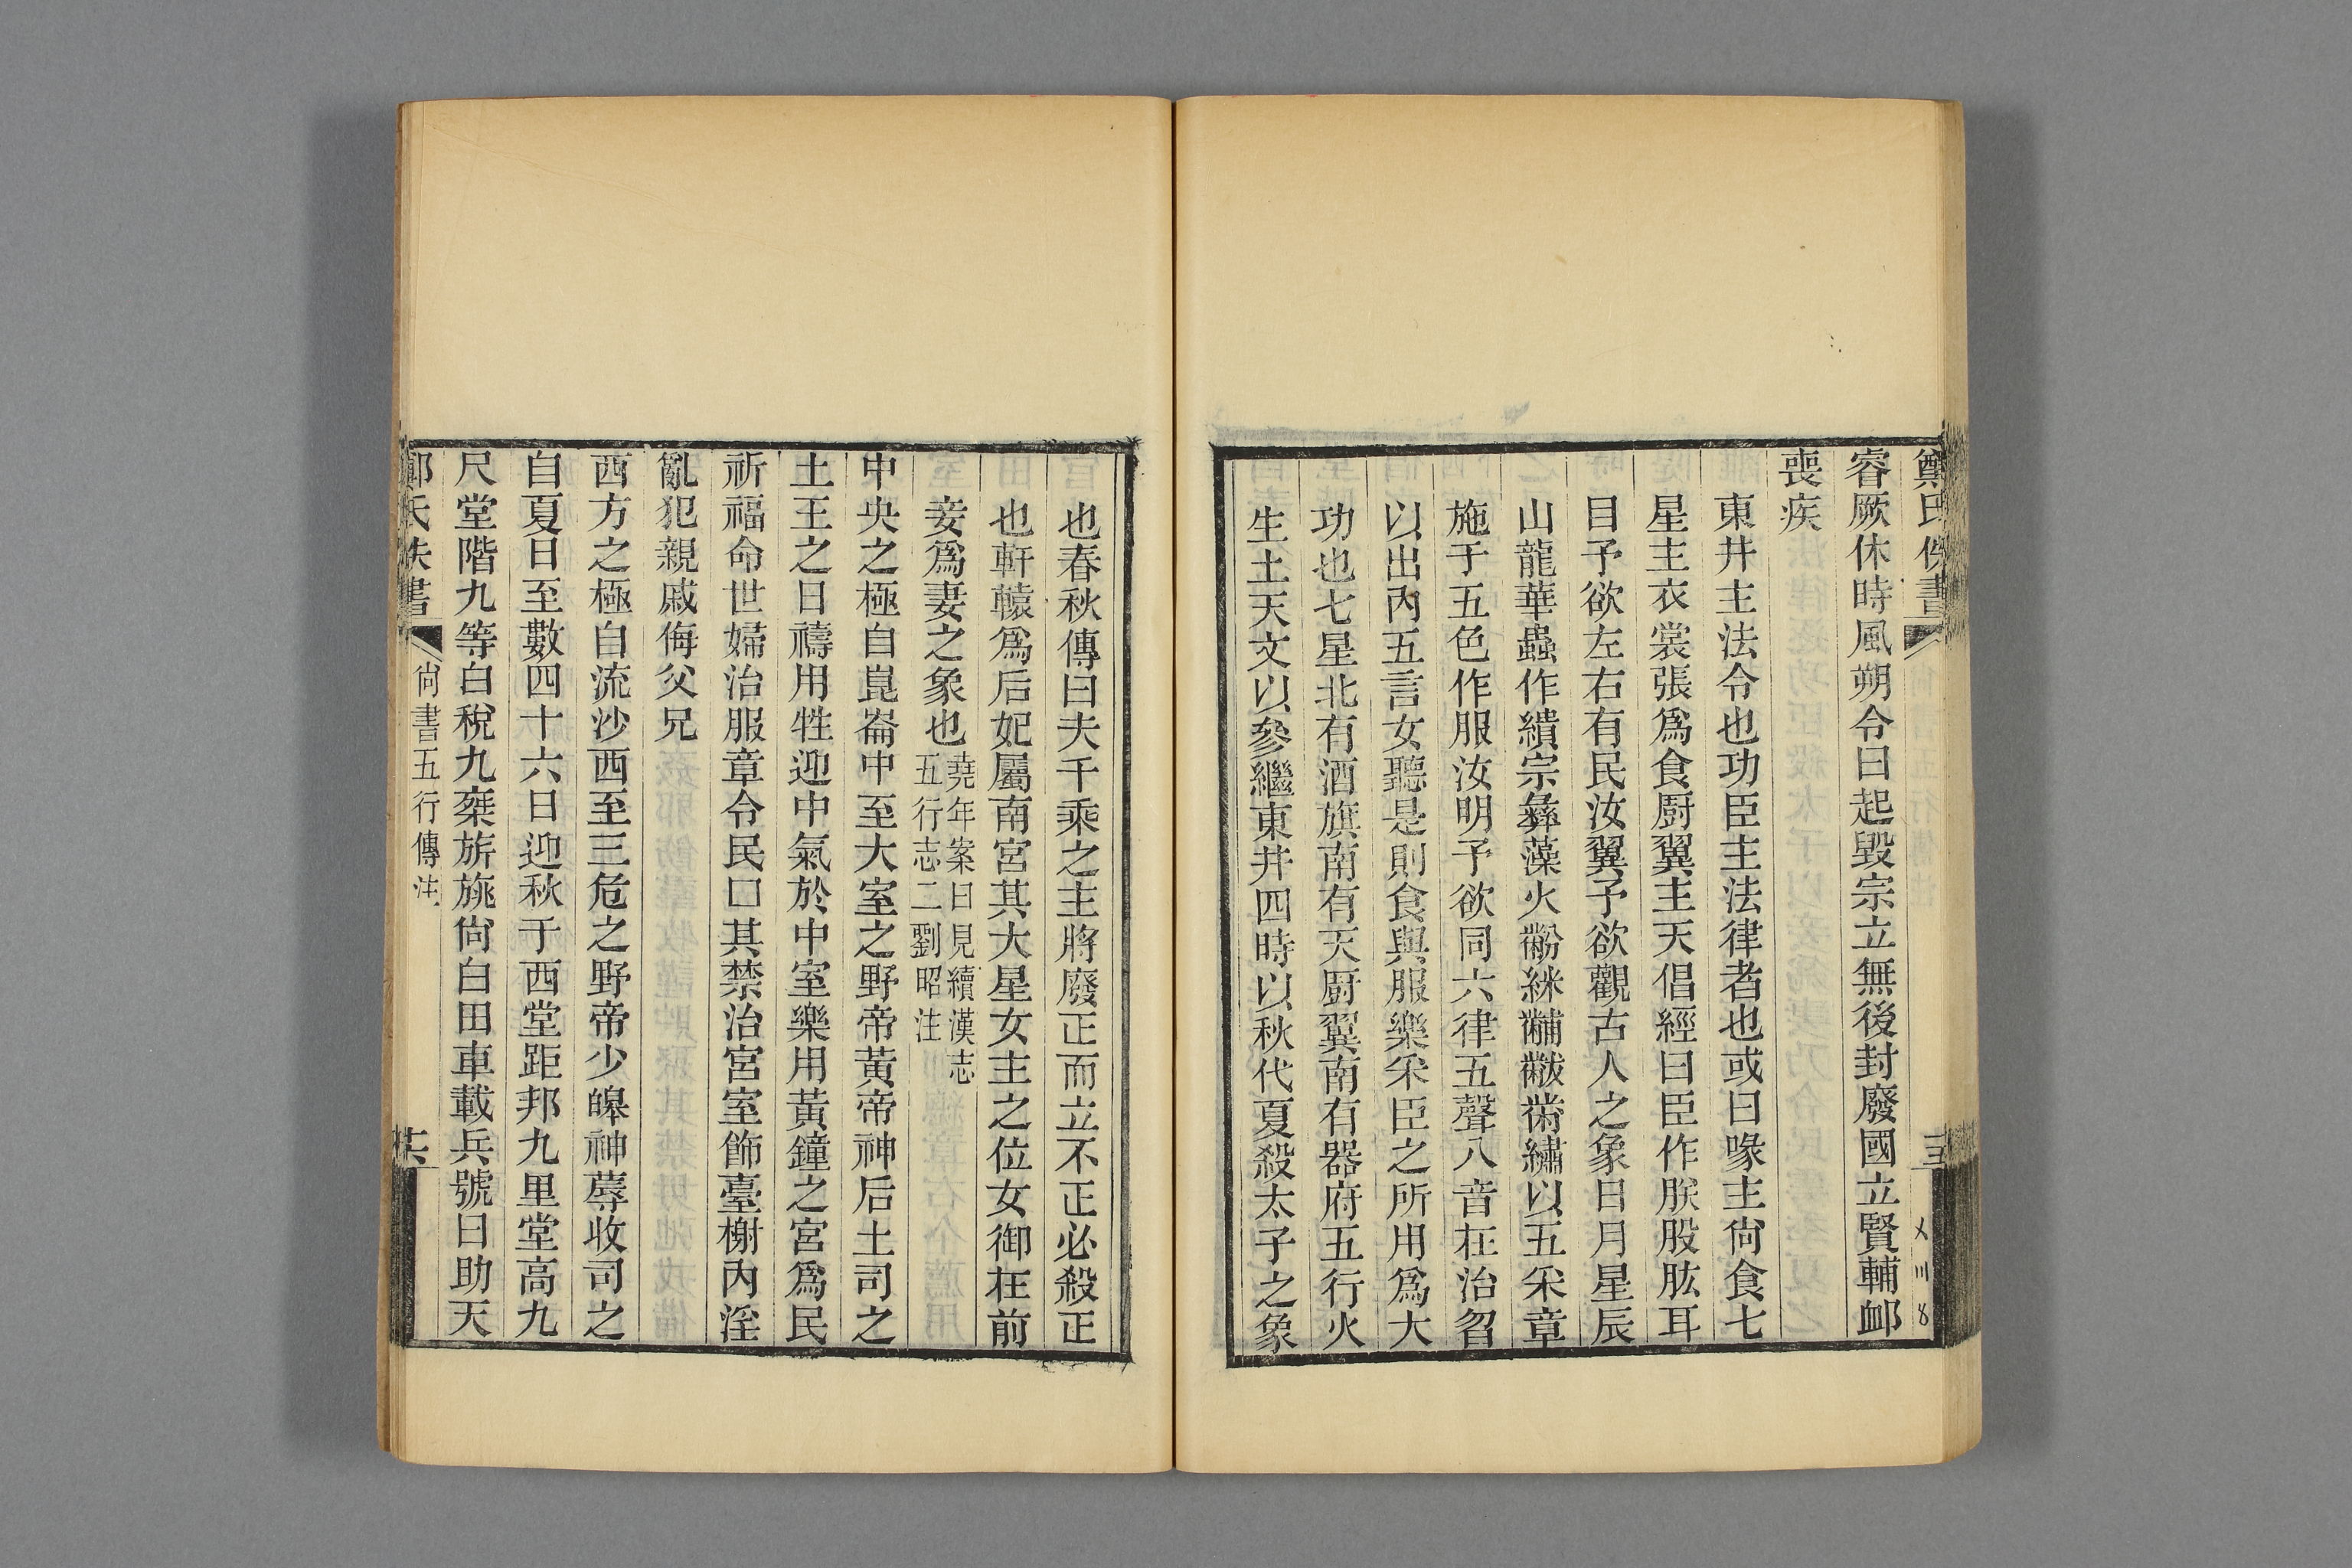 鄭氏佚書
睿厥休時風朔令曰起毀宗立無後封廢國立賢輔卹
喪疾
東井主法令也功臣主法律者也或曰喙主尙食七
星主衣裳張爲食廚翼主天倡經曰臣作朕股肱耳
目予欲左右有民汝翼予欲觀古人之象日月星辰
山龍華蟲作繢宗彝藻火黺絲黼黻黹繡以五采章
施于五色作服汝明予欲同六律五聲八音在治曶
以出內五言女聽是則食與服樂采臣之所用爲大
功也七星北有酒旗南有天廚翼南有器府五行火
生土天文以參繼東井四時以秋代夏殺太子之象
也春秋傳曰夫千乘之主將廢正而立不正必殺正
也軒轅爲后妃屬南宮其大星女主之位女御在前
妾爲妻之象也堯年案曰見續漢志
五行志二劉昭注
中央之極自崑崙中至大室之野帝黃帝神后土司之
土王之日禱用牲迎中氣於中室樂用黃鐘之宮爲民
祈福命世婦治服章令民囗其禁治宮室飾臺榭內淫
亂犯親戚侮父兄
西方之極自流沙西至三危之野帝少皞神蓐收司之
自夏日至數四十六日迎秋于西堂距邦九里堂高九
尺堂階九等白稅九椉旂旐尙白田車載兵號曰助天
鄭氏佚書 尙書五行傳注 十六